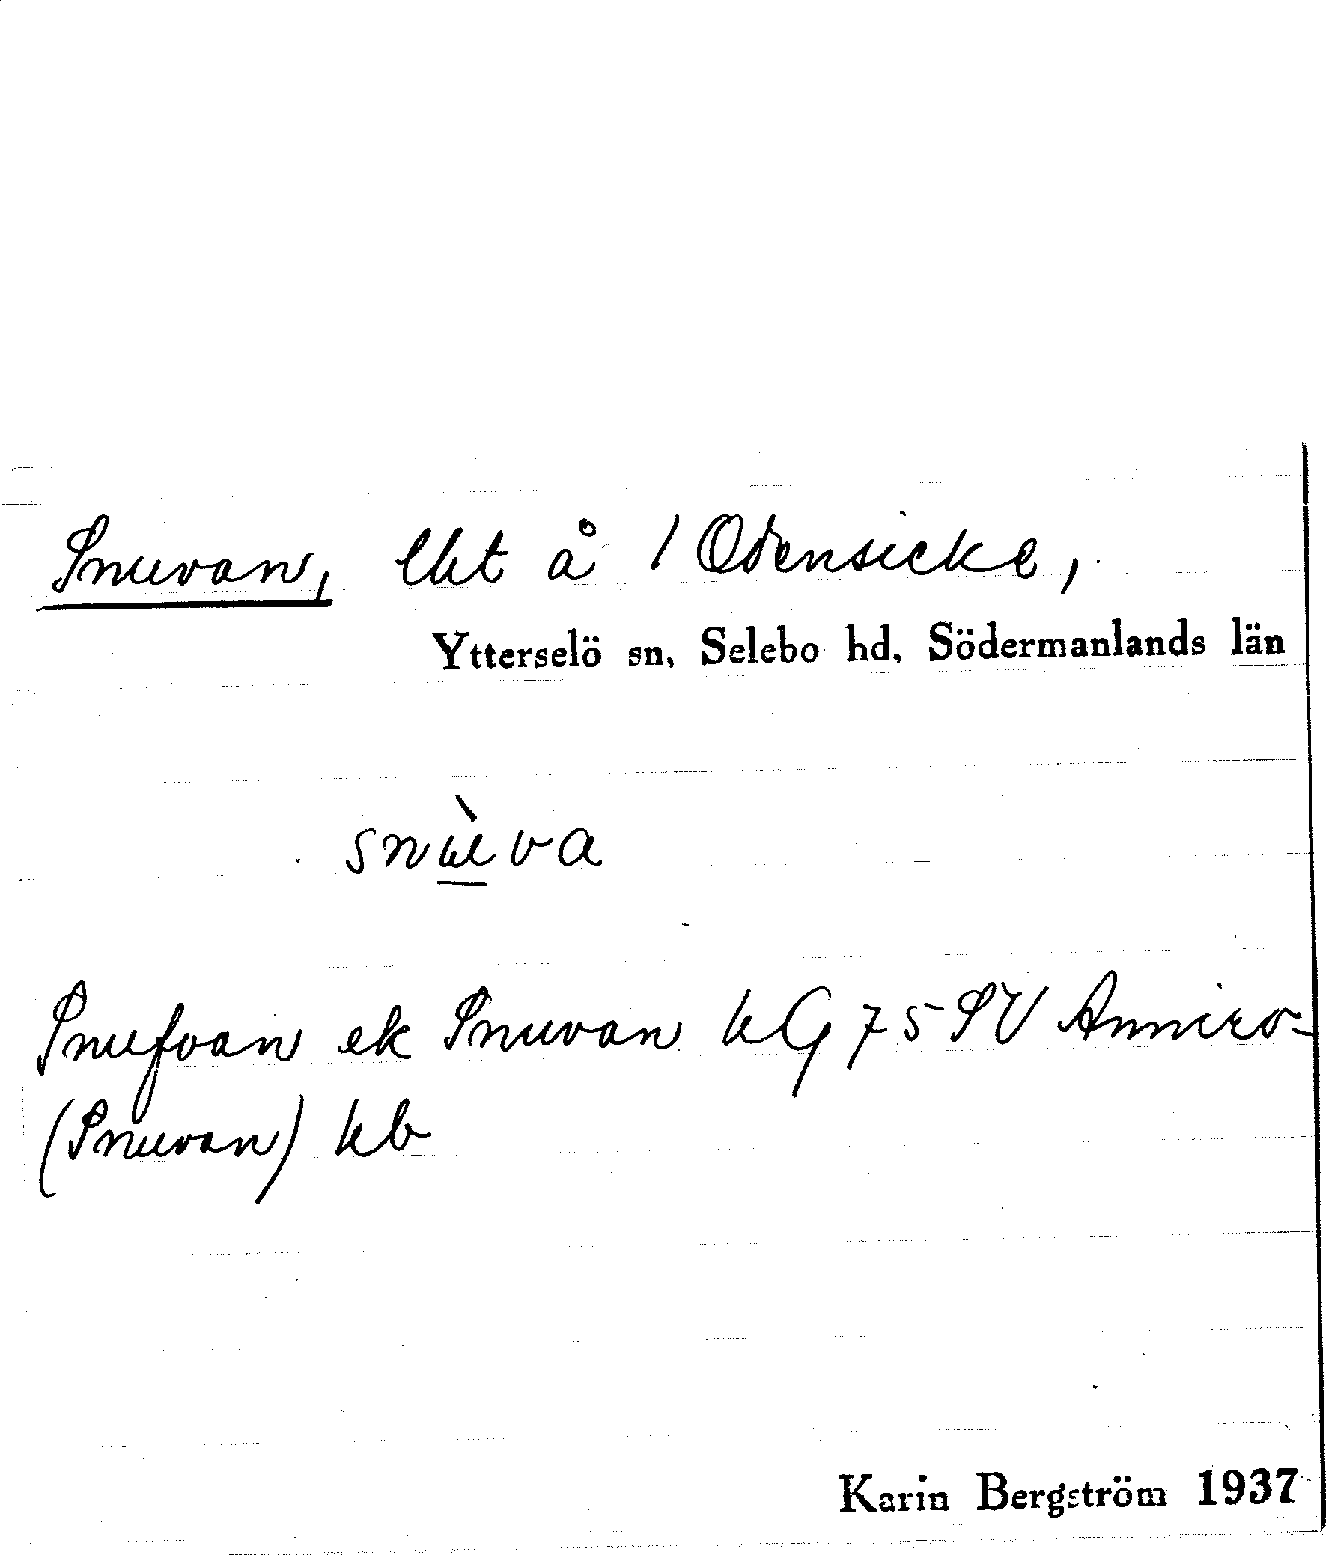 Snuvan, lht å 1 Odensicke,
Ytterselö sn, Selebo hd, Södermanlands län
snùva
Snufvan ek Snuvan kG 75 SV Anniro-
(Snuvan) kb
Karin Bergström 1937